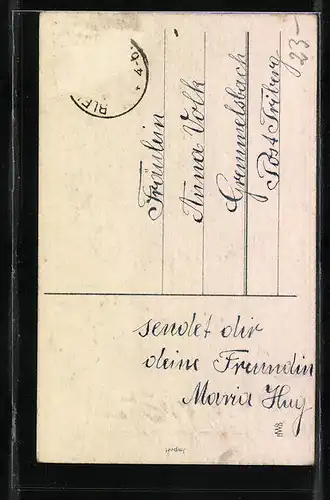 23-
4-5
RLE
Fräulein
Anna Volk
Gremmelsbach
Post Triberg
sendet dir
deine Freundin
Maria Hug